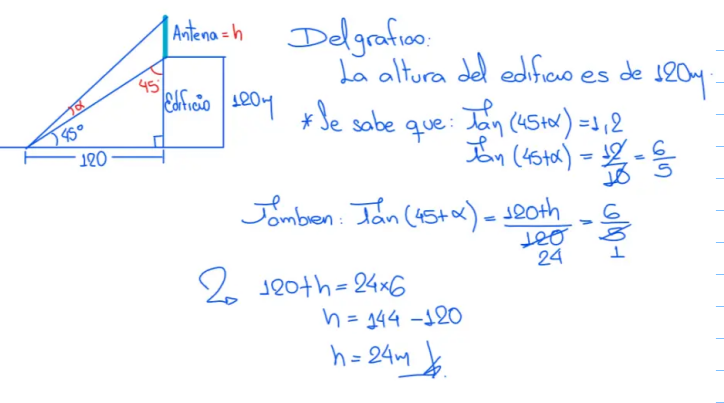 Antena = h
45°
Edificio
120m
α
45°
120
Del grafico:
La altura del edificio es de 120m.
* Se sabe que: Tan (45+α) = 1,2
Tan (45+α) = 12/10 = 6/5
Tambien: Tan (45+α) = 120+h/120 = 6/5
24 1
120+h = 24×6
h = 144 - 120
h = 24m